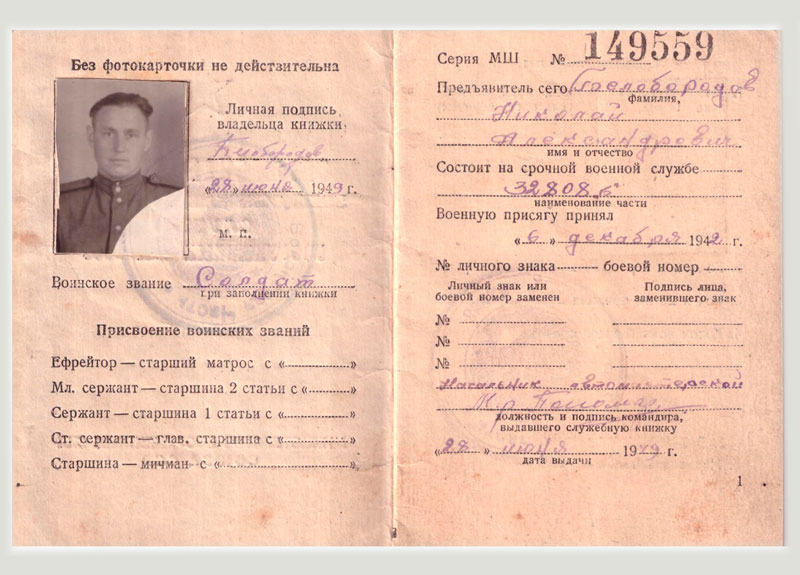 Без фотокарточки не действительна
Личная подпись
владельца книжки
«28» июня 1949 г.
м. п.
Воинское звание Солдат
при заполнении книжки
Присвоение воинских званий
Ефрейтор — старший матрос с « »
Мл. сержант — старшина 2 статьи с « »
Сержант — старшина 1 статьи с « »
Ст. сержант — глав. старшина с « »
Старшина — мичман с « »
Серия МШ № 149559
Предъявитель сего
фамилия,
Николай
Александрович
имя и отчество
Состоит на срочной военной службе
32808
наименование части
Военную присягу принял
«6» декабря 1942 г.
№ личного знака боевой номер
Личный знак или
боевой номер заменен
Подпись лица,
заменившего знак
№
№
№
Начальник автомастерской
должность и подпись командира,
выдавшего служебную книжку
«28» июня 1949 г.
дата выдачи
1